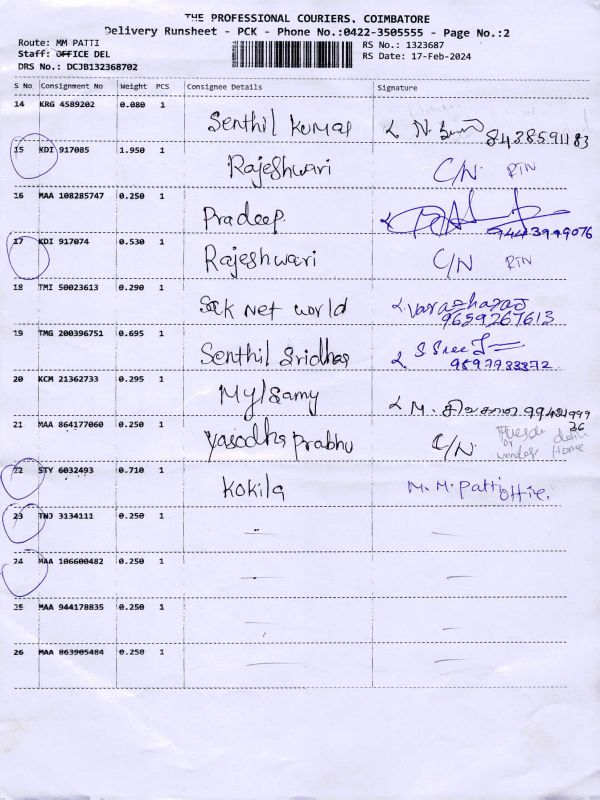 THE PROFESSIONAL COURIERS, COIMBATORE
Delivery Runsheet - PCK - Phone No.:0422-3505555 - Page No.:2
Route: MM PATTI
RS No.: 1323687
Staff: OFFICE DEL
RS Date: 17-Feb-2024
DRS No.: DCJB132368702
S No Consignment No Weight PCS Consignee Details Signature
14 KRG 4589202 0.080 1 Senthil Kumar
8438591183
15 KDI 917085 1.950 1 Rajeshwari C/N RTN
16 MAA 108285747 0.250 1 Pradeep
9443999076
17 KDI 917074 0.530 1 Rajeshwari C/N RTN
18 TMI 50023613 0.290 1 net world
9659267613
19 TMG 200396751 0.695 1 Senthil Sridhar
20 KCM 21362733 0.295 1 Mylsamy M. சிவகாமி
21 MAA 864177060 0.250 1 Yasodha Prabhu C/N.
Home
22 STY 6032493 0.710 1 Kokila M. M. Patti office.
23 TNJ 3134111 0.250 1
24 MAA 106600482 0.250 1
25 MAA 944178835 0.250 1
26 MAA 863905484 0.250 1